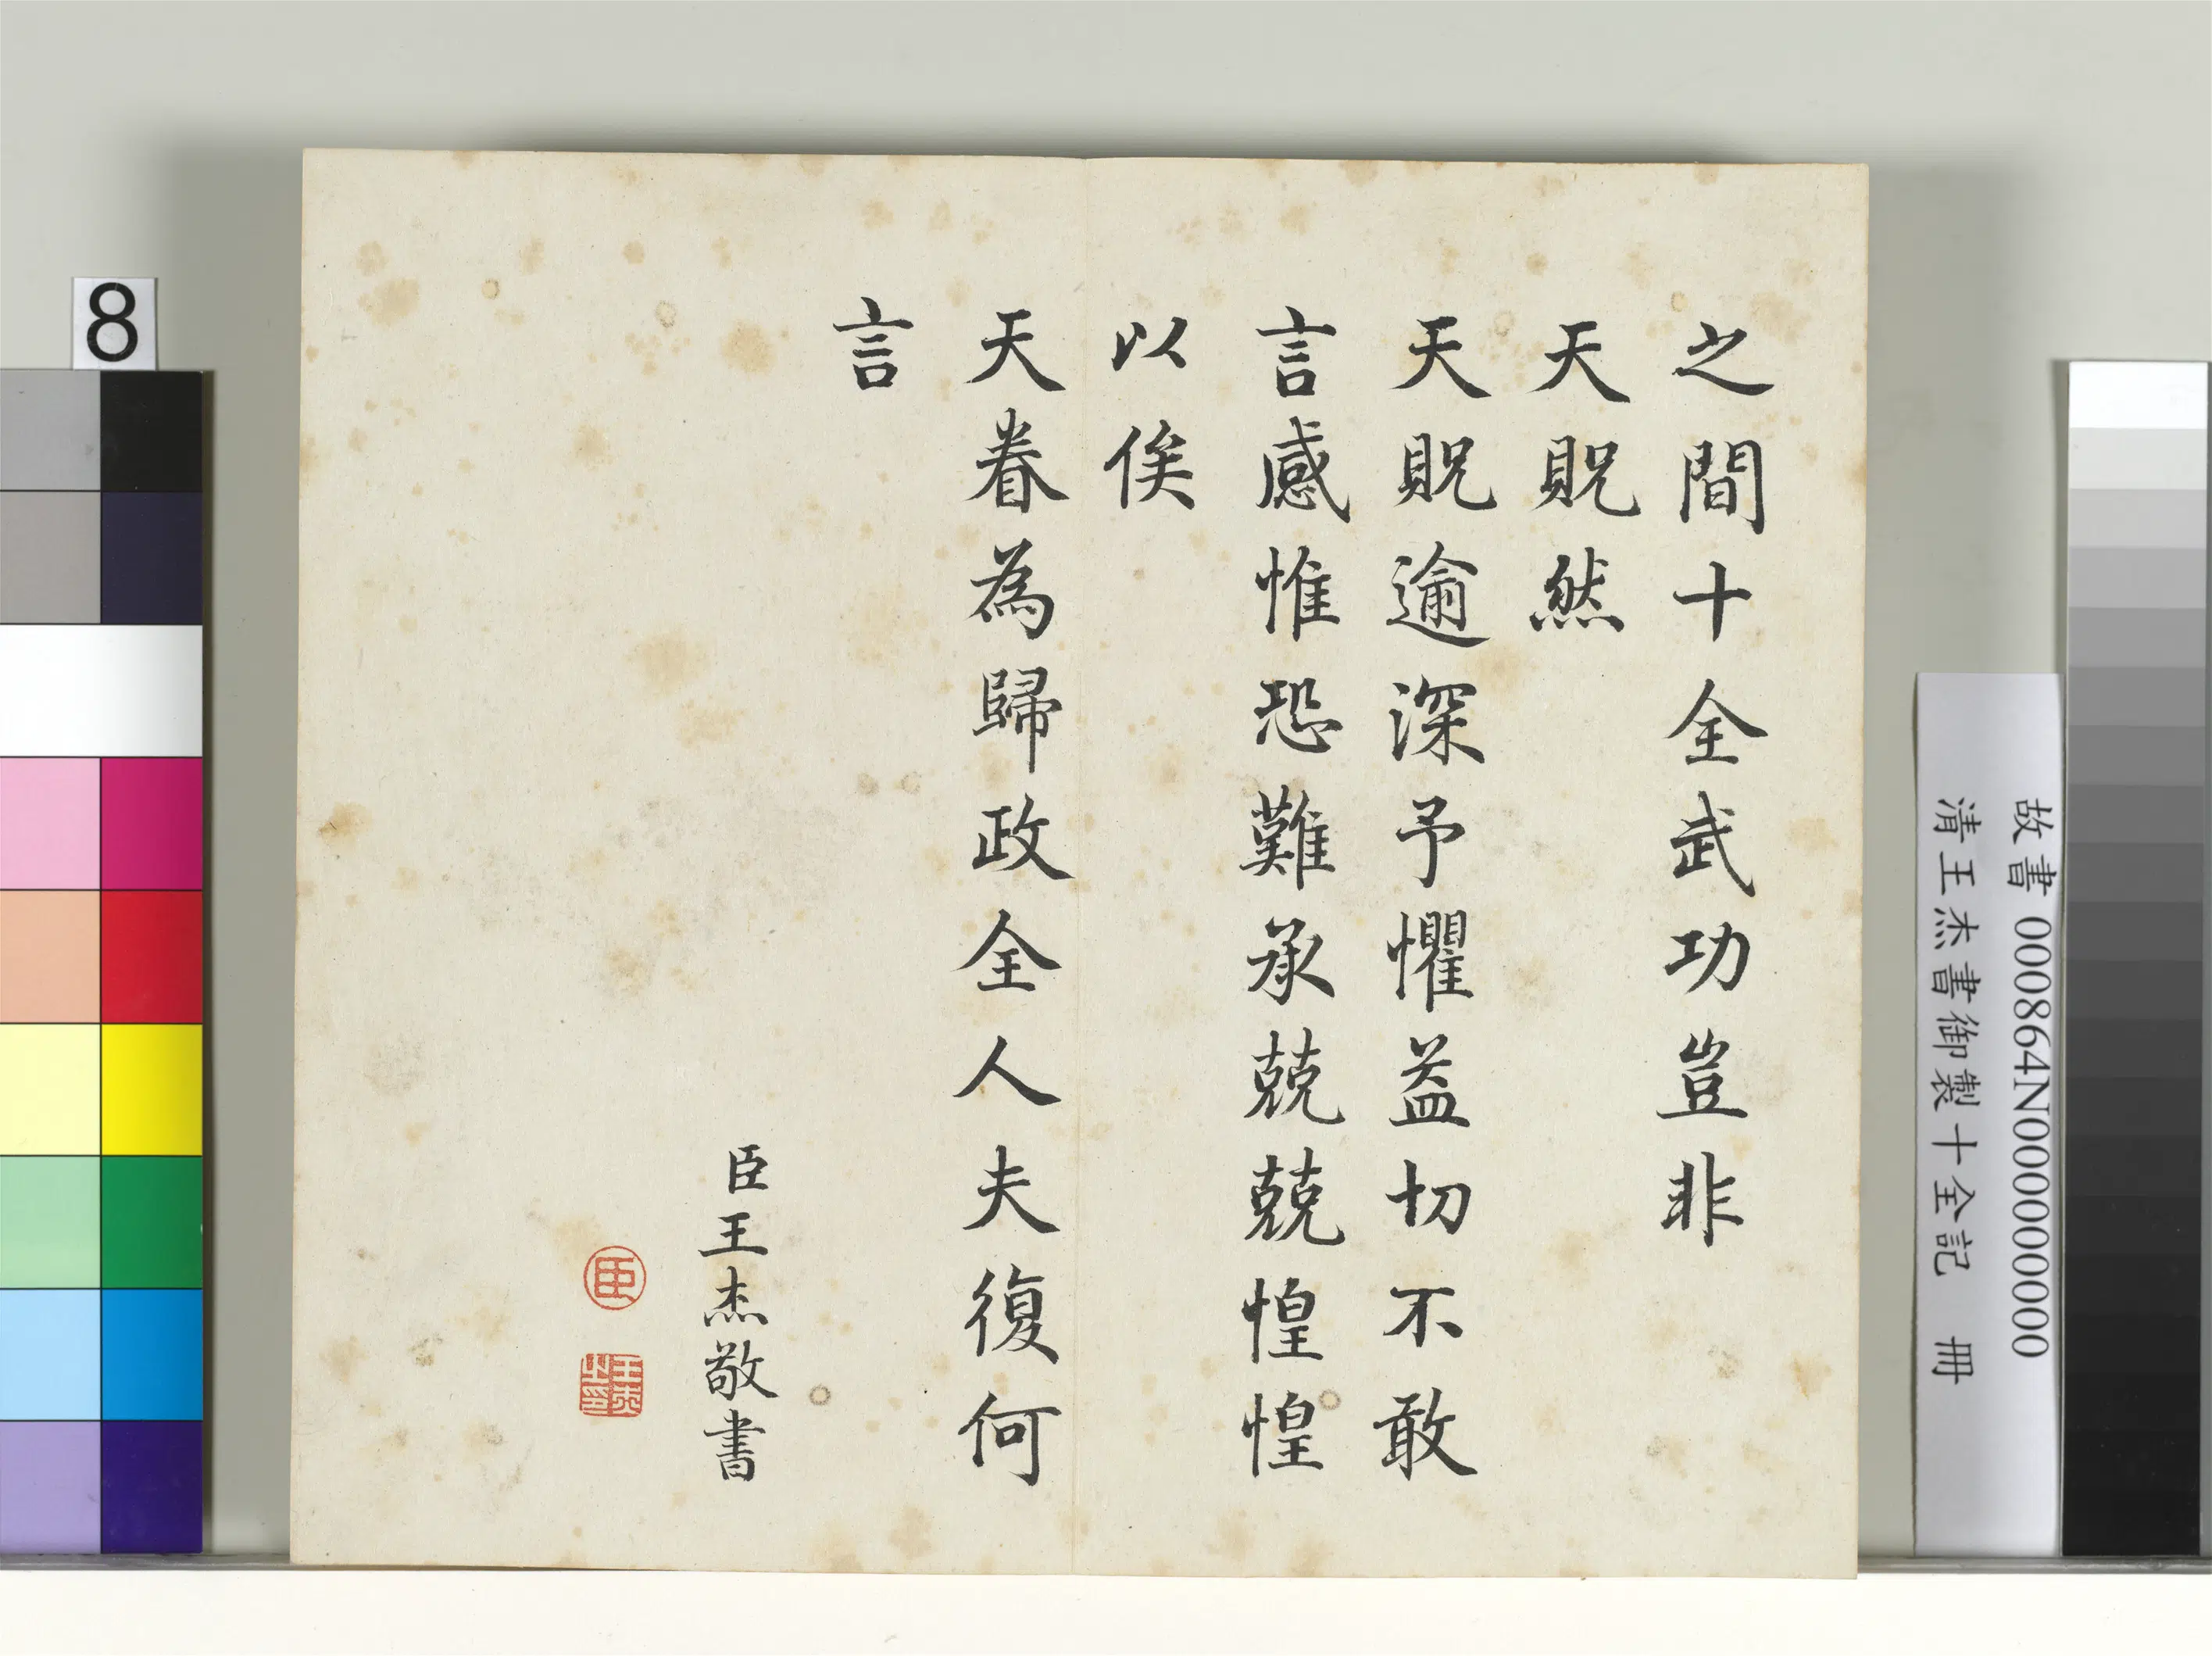 之間十全武功豈非
天貺然
天貺逾深予懼益切不敢
言感惟恐難承兢兢惶惶
以俟
天眷為歸政全人夫復何
言
臣王杰敬書
臣
王杰之印
8
故書 000864N000000000
清王杰書御製十全記 冊